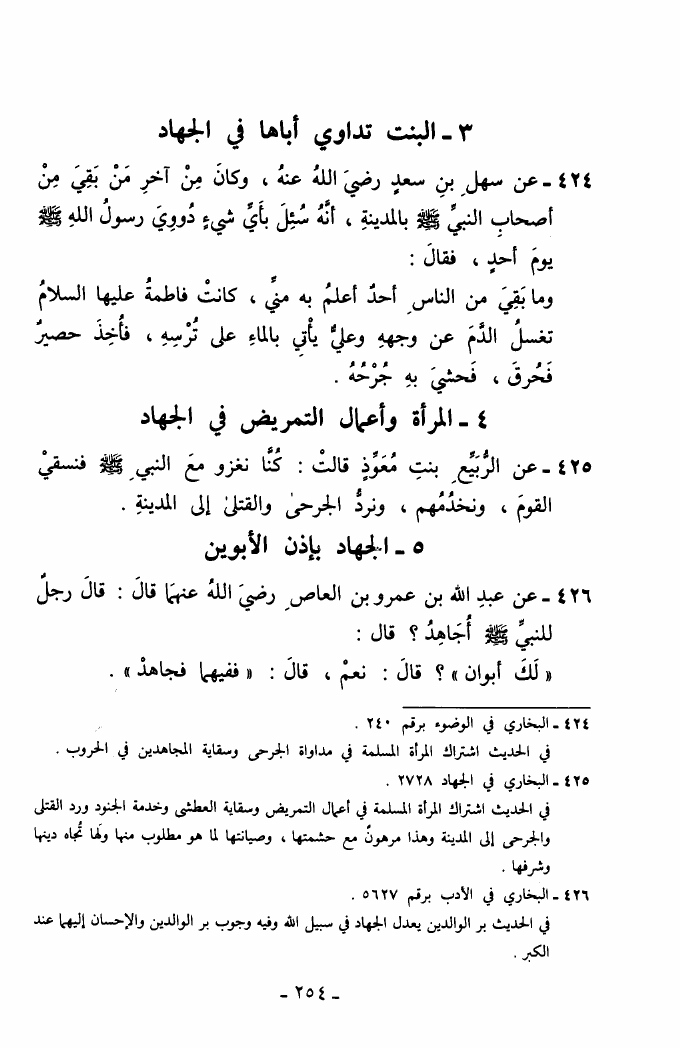 ٣ - البنت تداوي أباها في الجهاد
٤٢٤ - عن سهلِ بنِ سعدٍ رضيَ اللهُ عنهُ ، وكانَ مِنْ آخرِ مَنْ بَقِيَ مِنْ
أصحابِ النبيِّ ﷺ بالمدينةِ ، أنَّهُ سُئِلَ بأيِّ شيءٍ دُووِيَ رسولُ اللهِ ﷺ
يومَ أحدٍ ، فقالَ :
وما بَقِيَ من الناسِ أحدٌ أعلمُ به منيِّ ، كانتْ فاطمةُ عليها السلامُ
تغسلُ الدَّمَ عن وجههِ وعليٌّ يأتي بالماءِ على تُرْسِهِ ، فأُخِذَ حصيرٌ
فَحُرقَ ، فَحشيَ بهِ جُرْحُهُ .
٤ - المرأة وأعمال التمريض في الجهاد
٤٢٥ - عن الرُّبَيِّعِ بنتِ مُعَوِّذٍ قالتْ : كُنَّا نغزو معَ النبيِ ﷺ فنسقيْ
القومَ ، ونخدُمُهم ، ونردُّ الجرحىٰ والقتلىٰ إلى المدينةِ .
٥ - الجهاد بإذن الأبوين
٤٢٦ - عن عبدِ الله بن عمرو بن العاصِ رضيَ اللهُ عنهمَا قالَ : قالَ رجلٌ
للنبيِّ ﷺ أُجَاهِدُ ؟ قال :
« لَكَ أبوان » ؟ قالَ : نعمْ ، قالَ : « ففيهما فجاهدْ » .
٤٢٤ - البخاري في الوضوء برقم ٢٤٠ .
في الحديث اشتراك المرأة المسلمة في مداواة الجرحى وسقاية المجاهدين في الحروب .
٤٢٥ - البخاري في الجهاد ٢٧٢٨ .
في الحديث اشتراك المرأة المسلمة في أعمال التمريض وسقاية العطشى وخدمة الجنود ورد القتلى
والجرحى إلى المدينة وهذا مرهونٌ مع حشمتها ، وصيانتها لما هو مطلوب منها ولها تُجاه دينها
وشرفها .
٤٢٦ - البخاري في الأدب برقم ٥٦٢٧ .
في الحديث بر الوالدين يعدل الجهاد في سبيل الله وفيه وجوب بر الوالدين والإحسان إليهما عند
الكبر .
- ٢٥٤ -